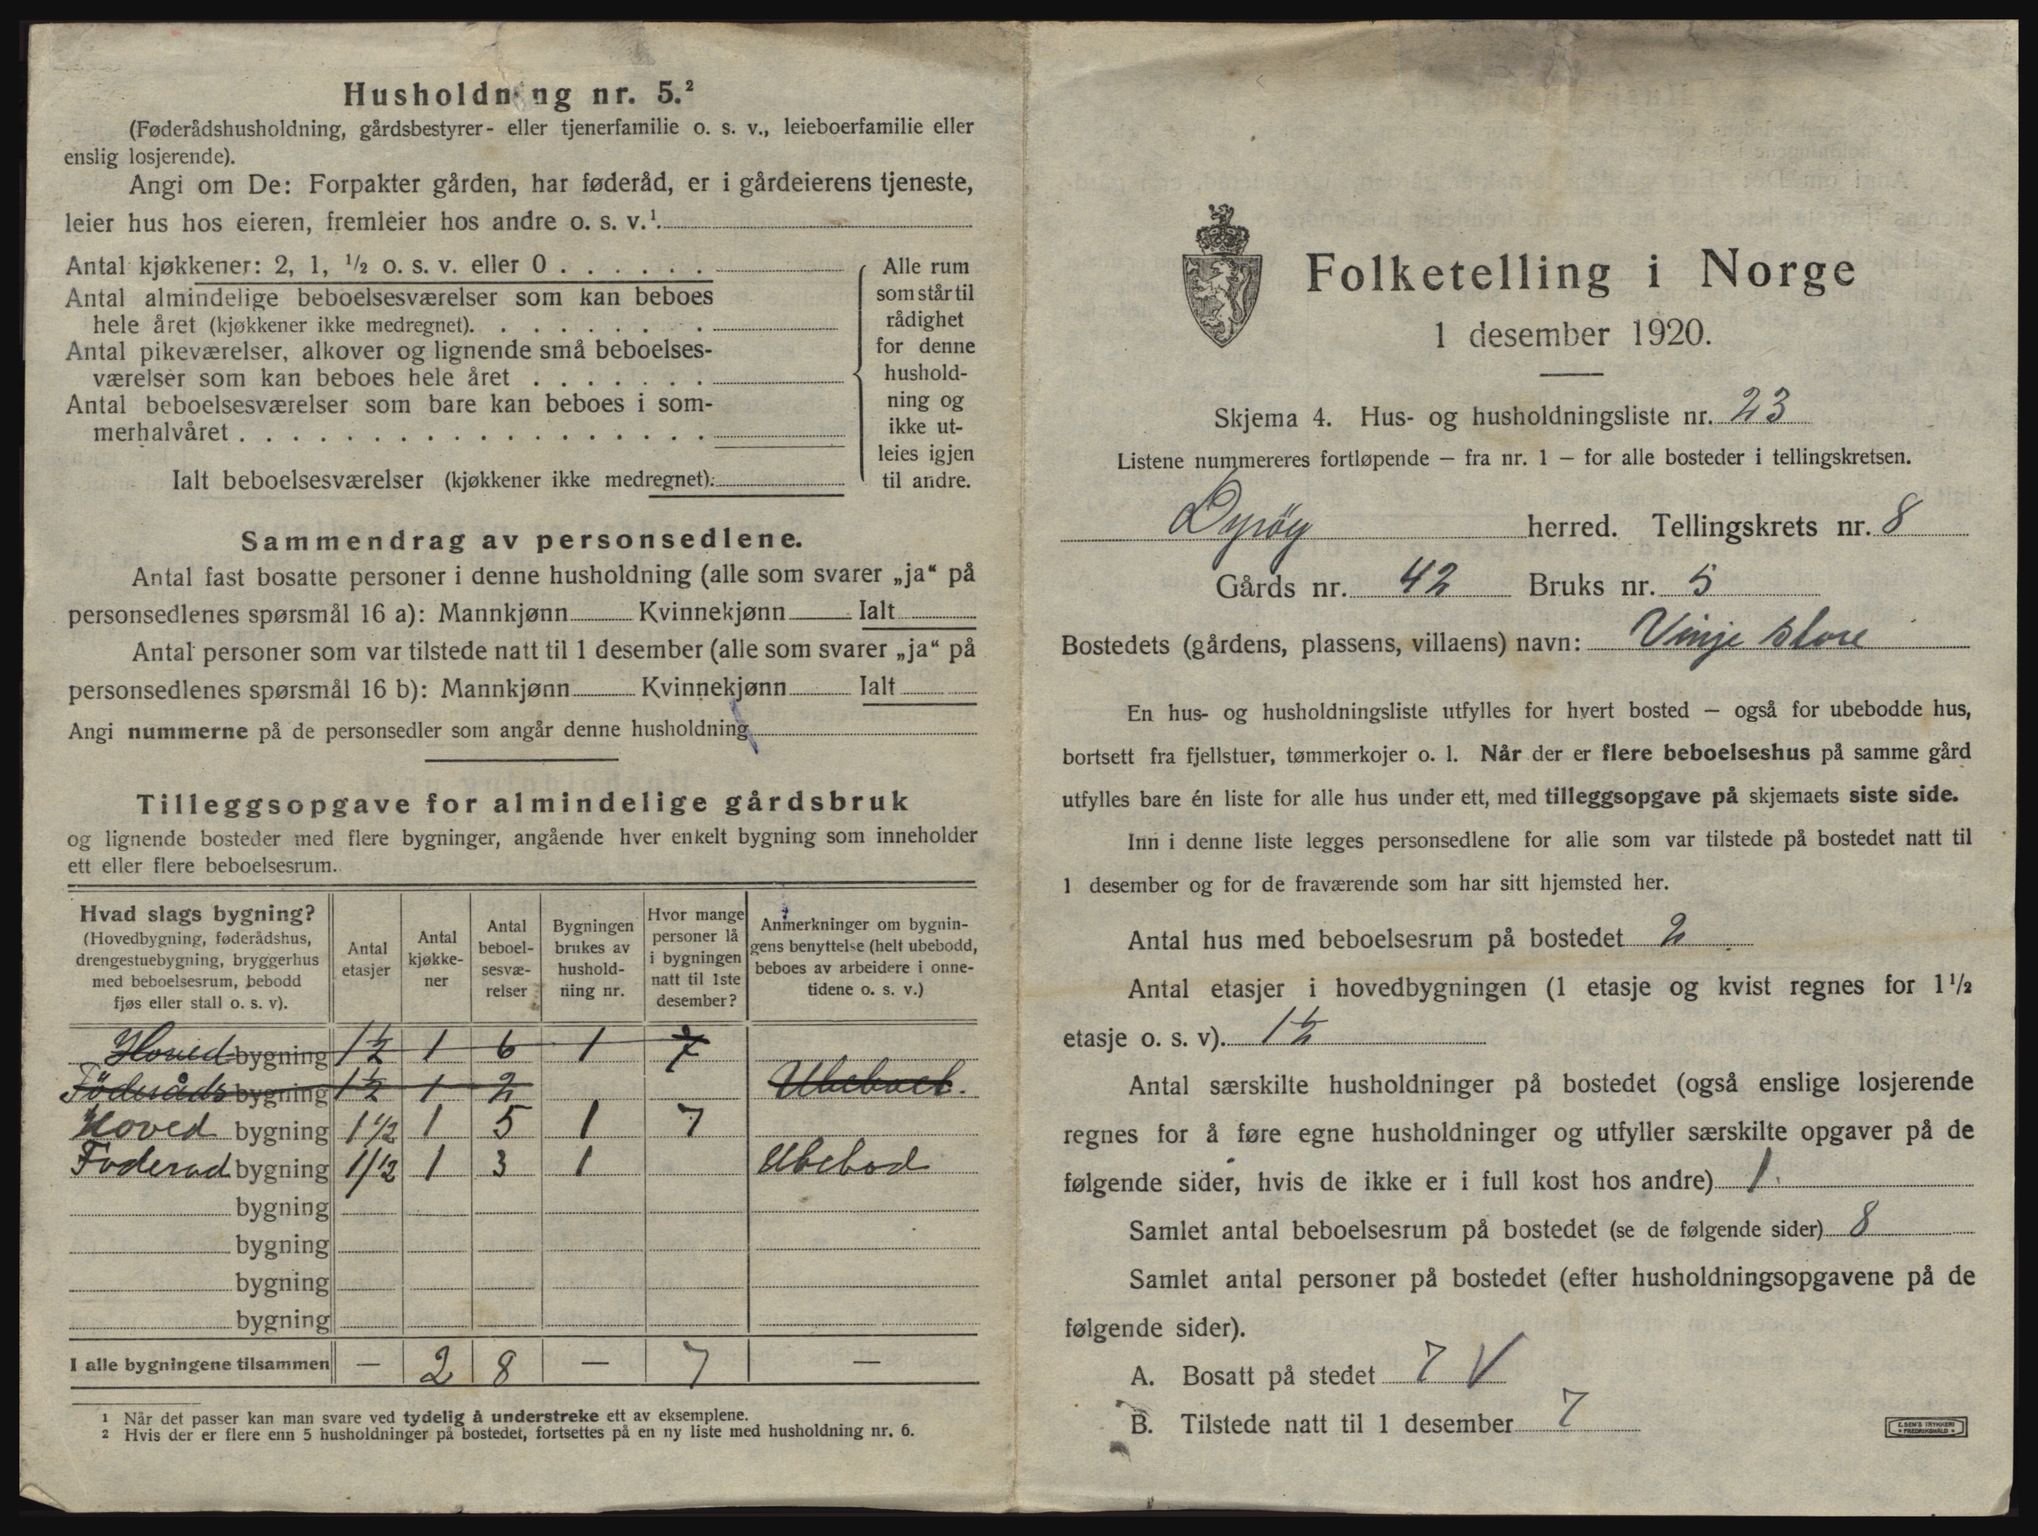 Husholdning nr. 5.²
(Føderådshusholdning, gårdsbestyrer- eller tjenerfamilie o. s. v., leieboerfamilie eller
enslig losjerende).
Angi om De: Forpakter gården, har føderåd, er i gårdeierens tjeneste,
leier hus hos eieren, fremleier hos andre o. s. v.¹.
Antal kjøkkener: 2, 1, ½ o. s. v. eller 0 . . . . . .
Antal almindelige beboelsesværelser som kan beboes
hele året (kjøkkener ikke medregnet). . . . . . . .
Antal pikeværelser, alkover og lignende små beboelses-
værelser som kan beboes hele året . . . . . . .
Antal beboelsesværelser som bare kan beboes i som-
merhalvåret . . . . . . . . . . . . . . . . . .
Ialt beboelsesværelser (kjøkkener ikke medregnet).
Alle rum
som står til
rådighet
for denne
hushold-
ning og
ikke ut-
leies igjen
til andre.
Sammendrag av personsedlene.
Antal fast bosatte personer i denne husholdning (alle som svarer „ja“ på
personsedlenes spørsmål 16 a): Mannkjønn Kvinnekjønn Ialt
Antal personer som var tilstede natt til 1 desember (alle som svarer „ja“ på
personsedlenes spørsmål 16 b): Mannkjønn Kvinnekjønn Ialt
Angi nummerne på de personsedler som angår denne husholdning
Tilleggsopgave for almindelige gårdsbruk
og lignende bosteder med flere bygninger, angående hver enkelt bygning som inneholder
ett eller flere beboelsesrum.
Hvad slags bygning?
(Hovedbygning, føderådshus,
drengestuebygning, bryggerhus
med beboelsesrum, bebodd
fjøs eller stall o. s. v).
Antal
etasjer
Antal
kjøkke-
ner
Antal
beboel-
sesvæ-
relser
Bygningen
brukes av
hushold-
ning nr.
Hvor mange
personer lå
i bygningen
natt til 1ste
desember?
Anmerkninger om bygnin-
gens benyttelse (helt ubebodd,
beboes av arbeidere i onne-
tidene o. s. v.)
Hovedbygning 1½ 1 6 1 7
Föderådsbygning 1½ 1 2 Ubeboet.
Hoved bygning 1½ 1 5 1 7
Foderad bygning 1½ 1 3 1 Ubebod
bygning
bygning
bygning
bygning
I alle bygningene tilsammen — 2 8 — 7 —
1 Når det passer kan man svare ved tydelig å understreke ett av eksemplene.
2 Hvis der er flere enn 5 husholdninger på bostedet, fortsettes på en ny liste med husholdning nr. 6.
Folketelling i Norge
1 desember 1920.
Skjema 4. Hus- og husholdningsliste nr. 23
Listene nummereres fortløpende – fra nr. 1 – for alle bosteder i tellingskretsen.
Dyrøy herred. Tellingskrets nr. 8
Gårds nr. 42 Bruks nr. 5
Bostedets (gårdens, plassens, villaens) navn: Vinje store
En hus- og husholdningsliste utfylles for hvert bosted – også for ubebodde hus,
bortsett fra fjellstuer, tømmerkojer o. l. Når der er flere beboelseshus på samme gård
utfylles bare én liste for alle hus under ett, med tilleggsopgave på skjemaets siste side.
Inn i denne liste legges personsedlene for alle som var tilstede på bostedet natt til
1 desember og for de fraværende som har sitt hjemsted her.
Antal hus med beboelsesrum på bostedet 2
Antal etasjer i hovedbygningen (1 etasje og kvist regnes for 1½
etasje o. s. v). 1½
Antal særskilte husholdninger på bostedet (også enslige losjerende
regnes for å føre egne husholdninger og utfyller særskilte opgaver på de
følgende sider, hvis de ikke er i full kost hos andre) 1.
Samlet antal beboelsesrum på bostedet (se de følgende sider) 8
Samlet antal personer på bostedet (efter husholdningsopgavene på de
følgende sider).
A. Bosatt på stedet 7 V
B. Tilstede natt til 1 desember 7
E. SEM'S TRYKKERI
FREDRIKSHALD